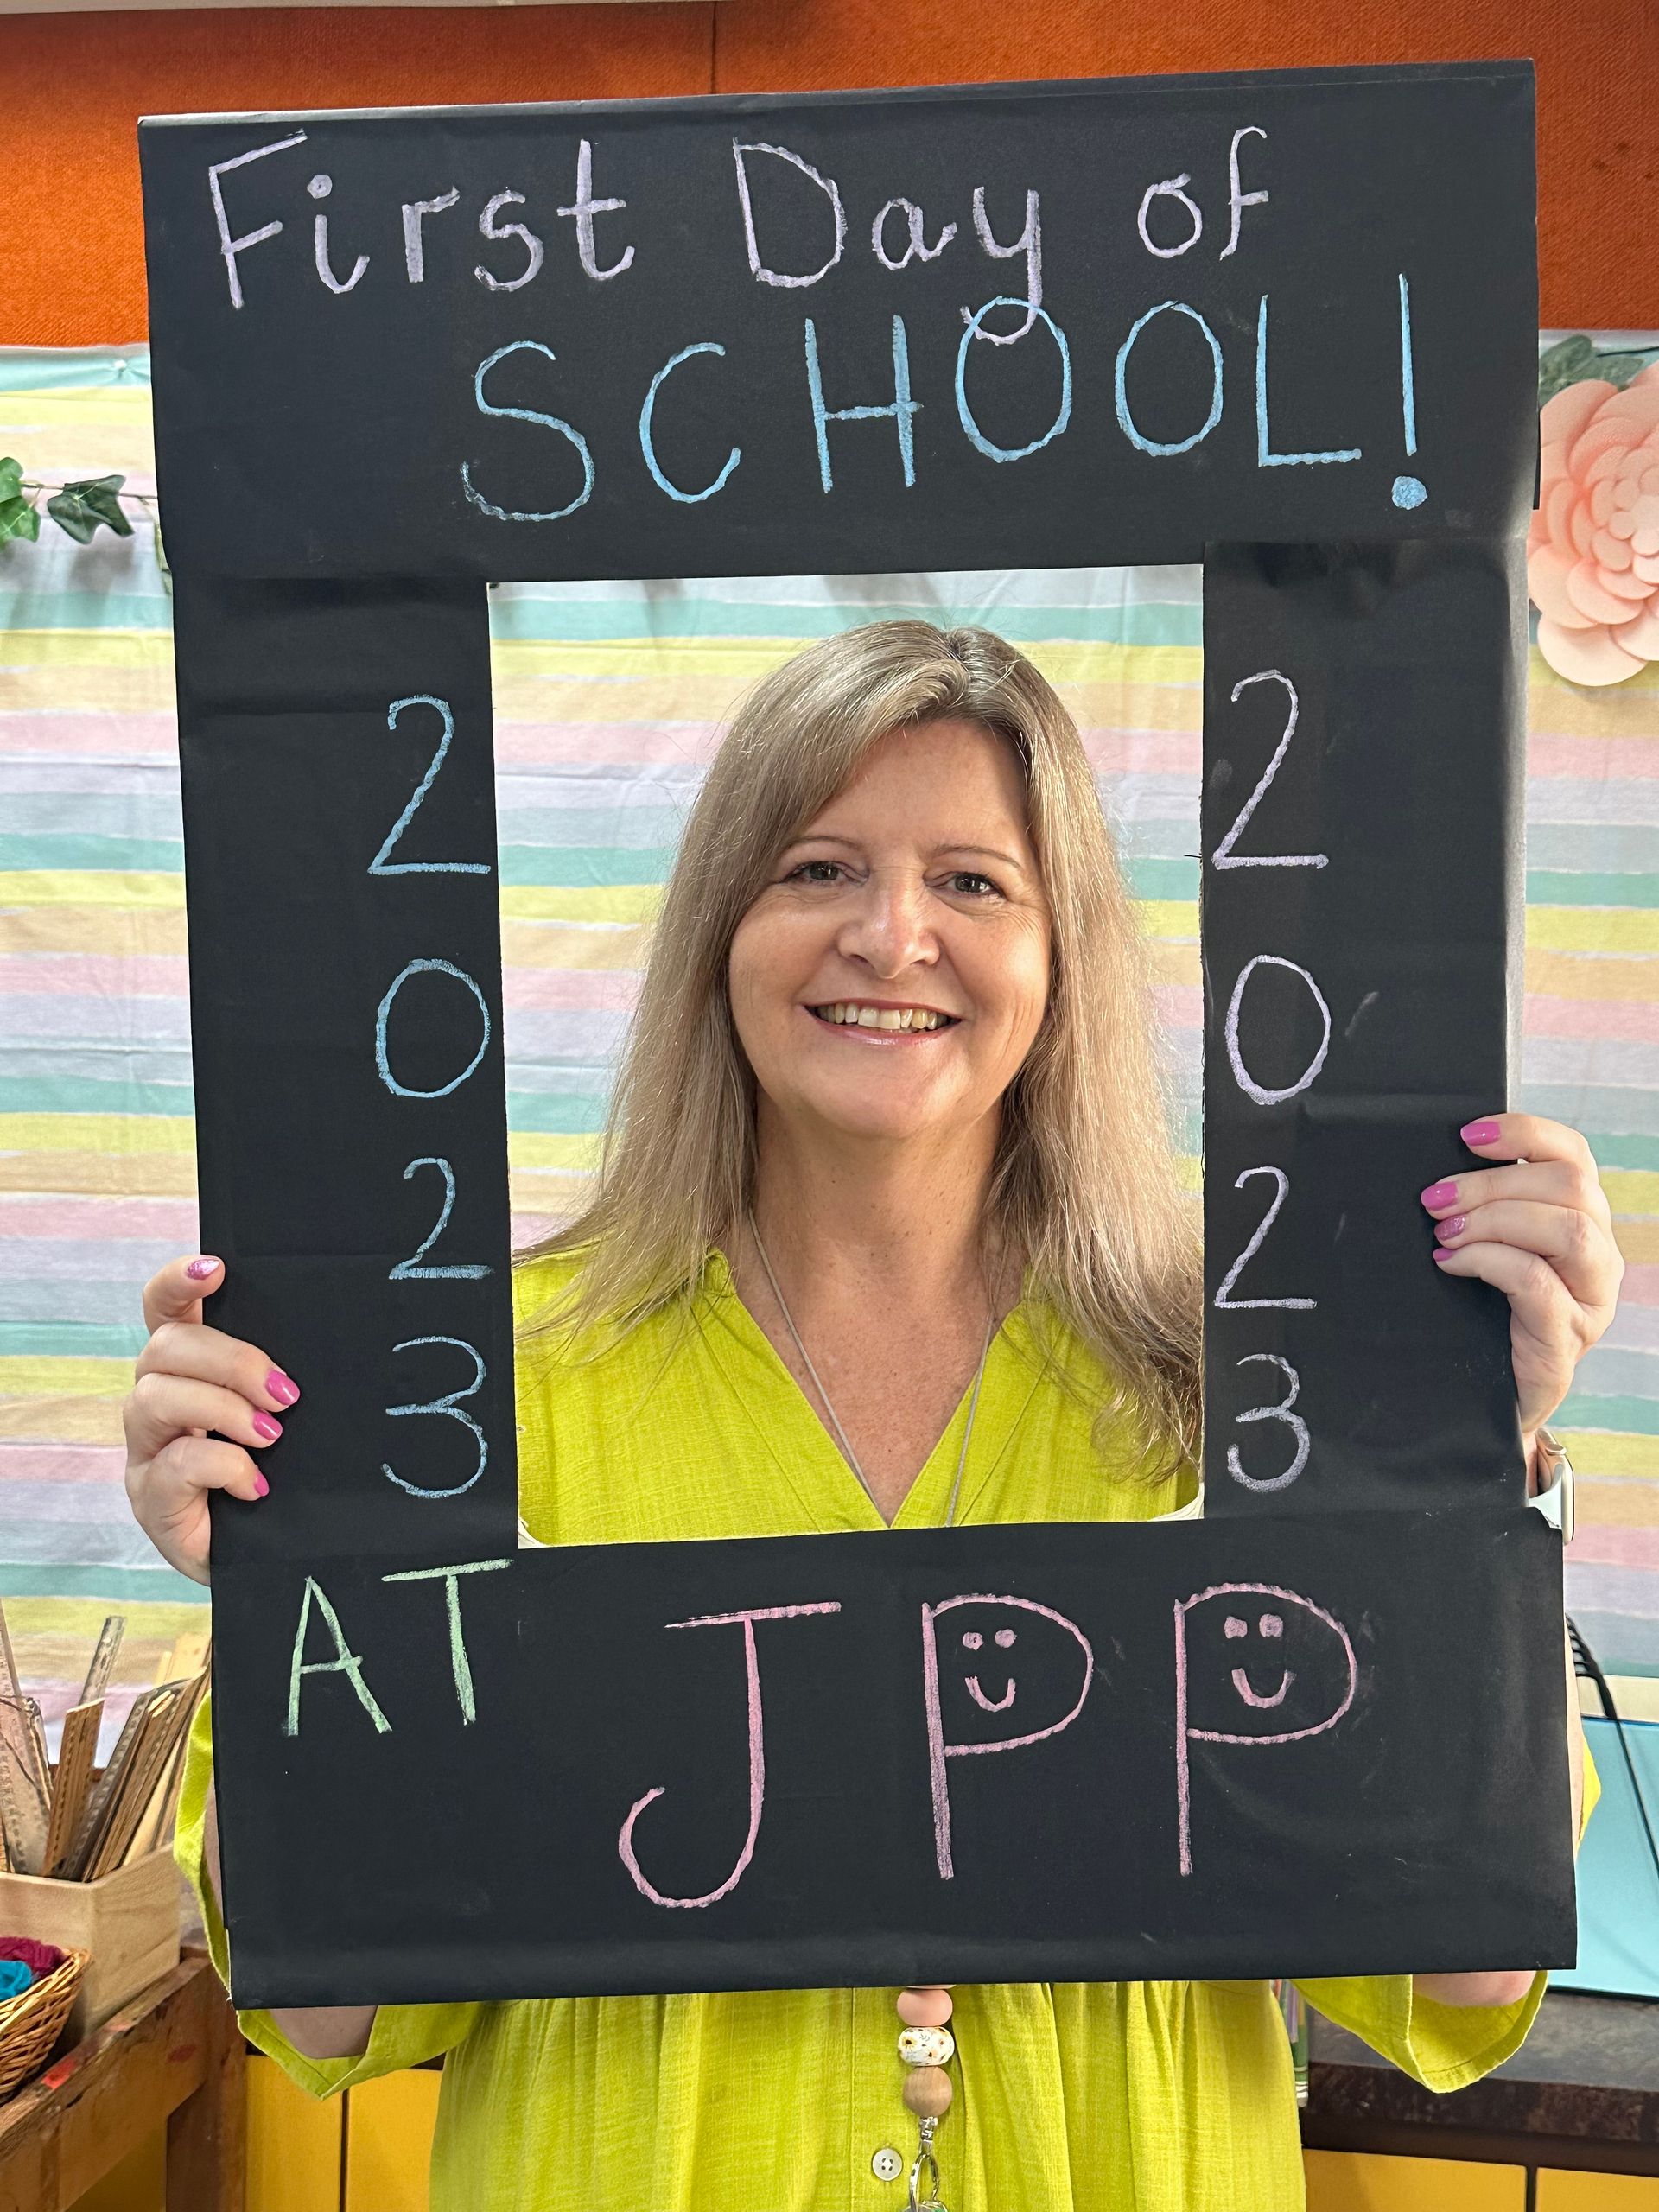 First Day of
SCHOOL!
2023
2023
AT JPP